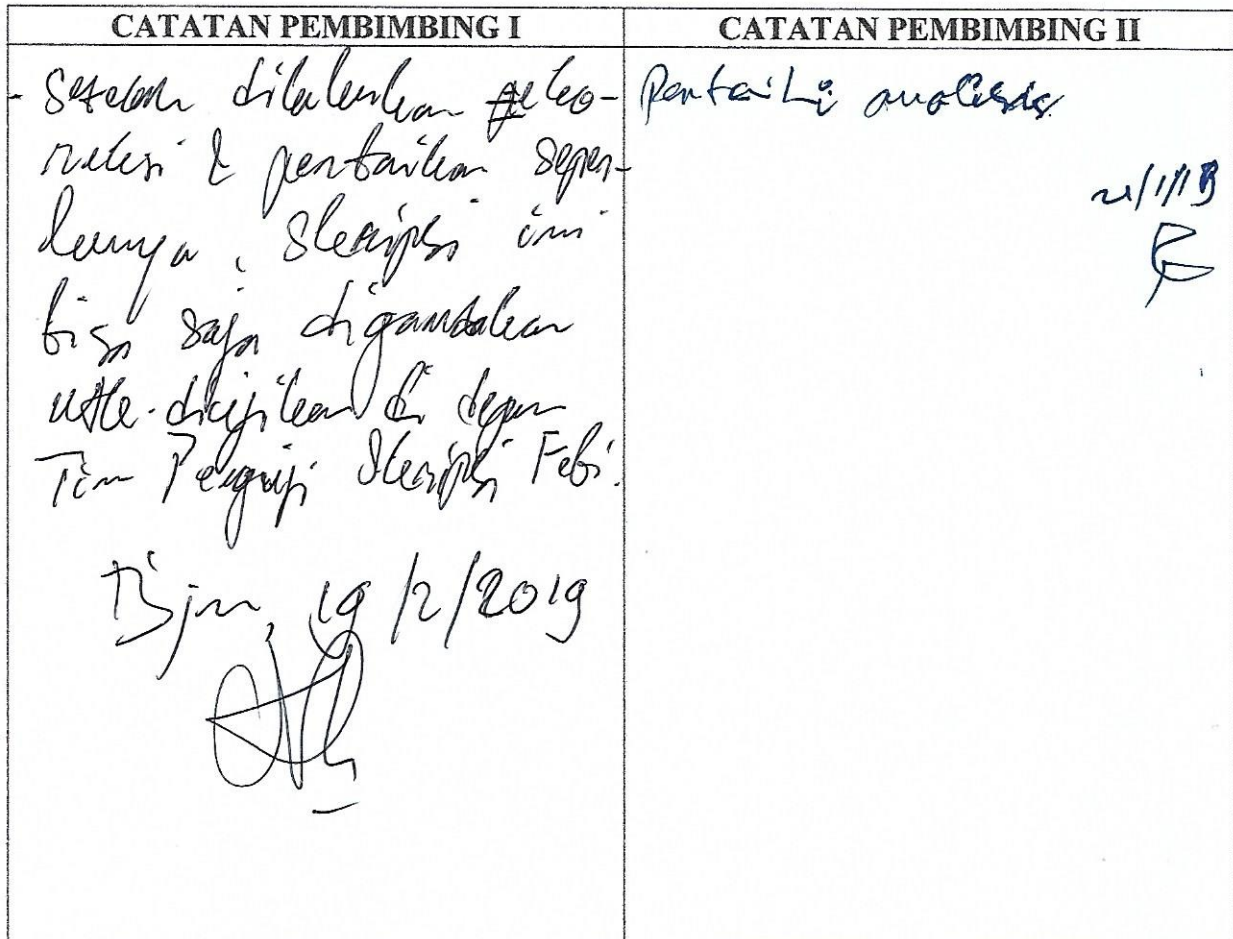 CATATAN PEMBIMBING I
CATATAN PEMBIMBING II
- Setelah dilakukan peko-
reksi & perbaikan seper-
lunya, Skripsi ini
bisa saja digandakan
utk diujikan di depan
Tim Penguji Skripsi Febi.
Bjm, 19/2/2019
Perbaiki analisis
21/1/19